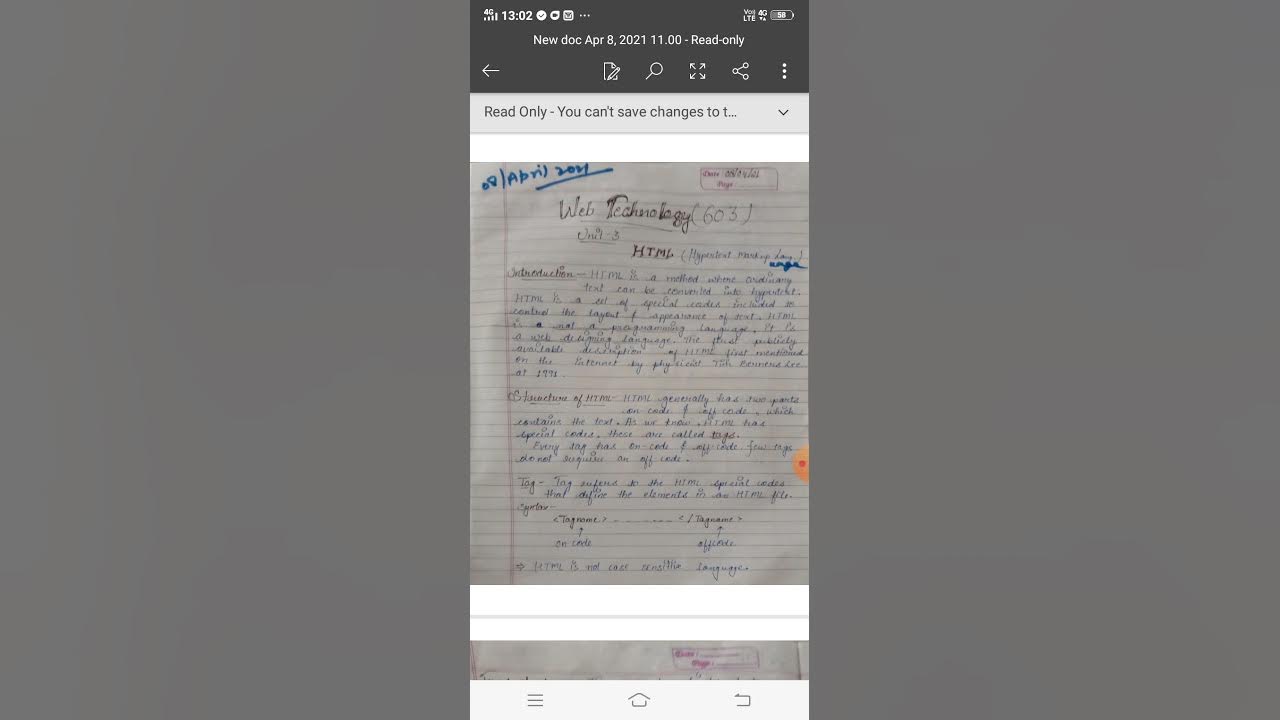 4G 13:02 ... Voi) LTE 4G 58
New doc Apr 8, 2021 11.00 - Read-only
Read Only - You can't save changes to t...
08/April 2021
Date 08/04/21
Page
Web Technology (603)
Unit-3
HTML (Hypertext Markup Lang.)
uage
Introduction - HTML is a method where ordinary
text can be converted into hypertext.
HTML is a set of special codes included to
control the layout & appearance of text. HTML
is a not a programming language. It is
a web designing language. The first publicly
available description of HTML first mentioned
on the internet by physicist Tim Berners Lee
at 1991.
Structure of HTML - HTML generally has two parts
on code & off code, which
contains the text. As we know, HTML has
special codes, these are called tags.
Every tag has on-code & off-code few tags
do not require an off code.
Tag - Tag refers to the HTML special codes
that define the elements in an HTML file.
Syntax -
<Tagname> - - - - - - </Tagname>
↑ ↑
on code offcode
⇒ HTML is not case sensitive language.
Date :
Page :